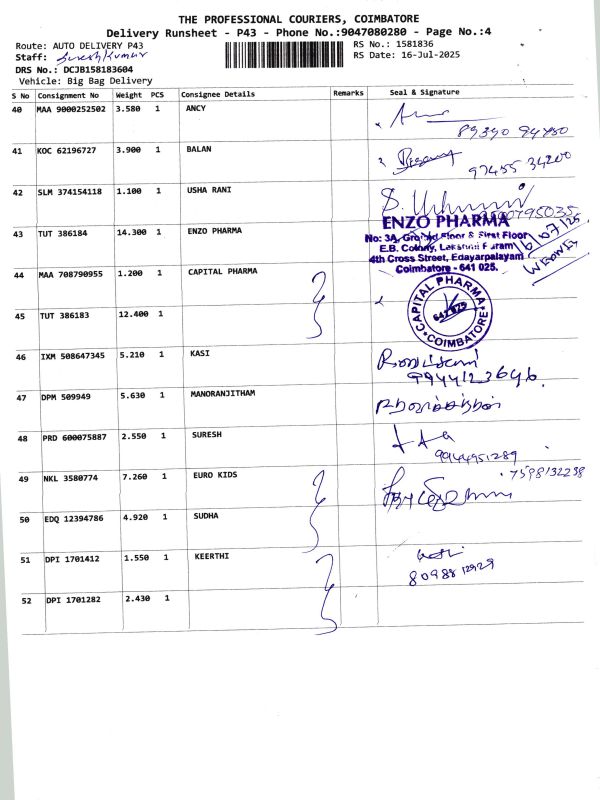 THE PROFESSIONAL COURIERS, COIMBATORE
Delivery Runsheet - P43 - Phone No.:9047080280 - Page No.:4
Route: AUTO DELIVERY P43 RS No.: 1581836
Staff: Sureshkumar RS Date: 16-Jul-2025
DRS No.: DCJB158183604
Vehicle: Big Bag Delivery
S No Consignment No Weight PCS Consignee Details Remarks Seal & Signature
40 MAA 9000252502 3.580 1 ANCY
41 KOC 62196727 3.900 1 BALAN
97455 34200
42 SLM 374154118 1.100 1 USHA RANI
43 TUT 386184 14.300 1 ENZO PHARMA
ENZO PHARMA
No: 3A, Ground Floor & First Floor
E.B. Colony, Lakshmi Puram
4th Cross Street, Edayarpalayam
Coimbatore - 641 025.
44 MAA 708790955 1.200 1 CAPITAL PHARMA
CAPITAL PHARMA
COIMBATORE
45 TUT 386183 12.400 1
46 IXM 508647345 5.210 1 KASI
9944123646.
47 DPM 509949 5.630 1 MANORANJITHAM
48 PRD 600075887 2.550 1 SURESH
9944951289
49 NKL 3580774 7.260 1 EURO KIDS
7598132238
50 EDQ 12394786 4.920 1 SUDHA
51 DPI 1701412 1.550 1 KEERTHI
8098812929
52 DPI 1701282 2.430 1